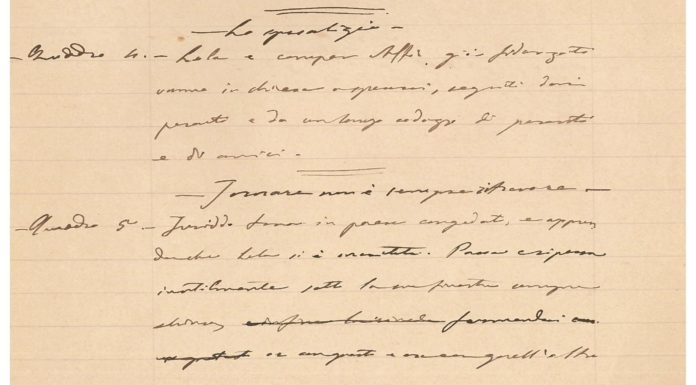 - Lo sposalizio -
- Quadro 4. - Lola e compar Alfio, già fidanzati
vanno in chiesa a sposarsi, seguiti dai
parenti e da un lungo codazzo di
e di amici. -
- Tornare non è sempre ritrovare -
- Quadro 5 - Turiddu torna in paese congedato, e appren
de che Lola si è maritata. Passa e ripassa
inutilmente sotto la sua finestra sempre
chiusa
e